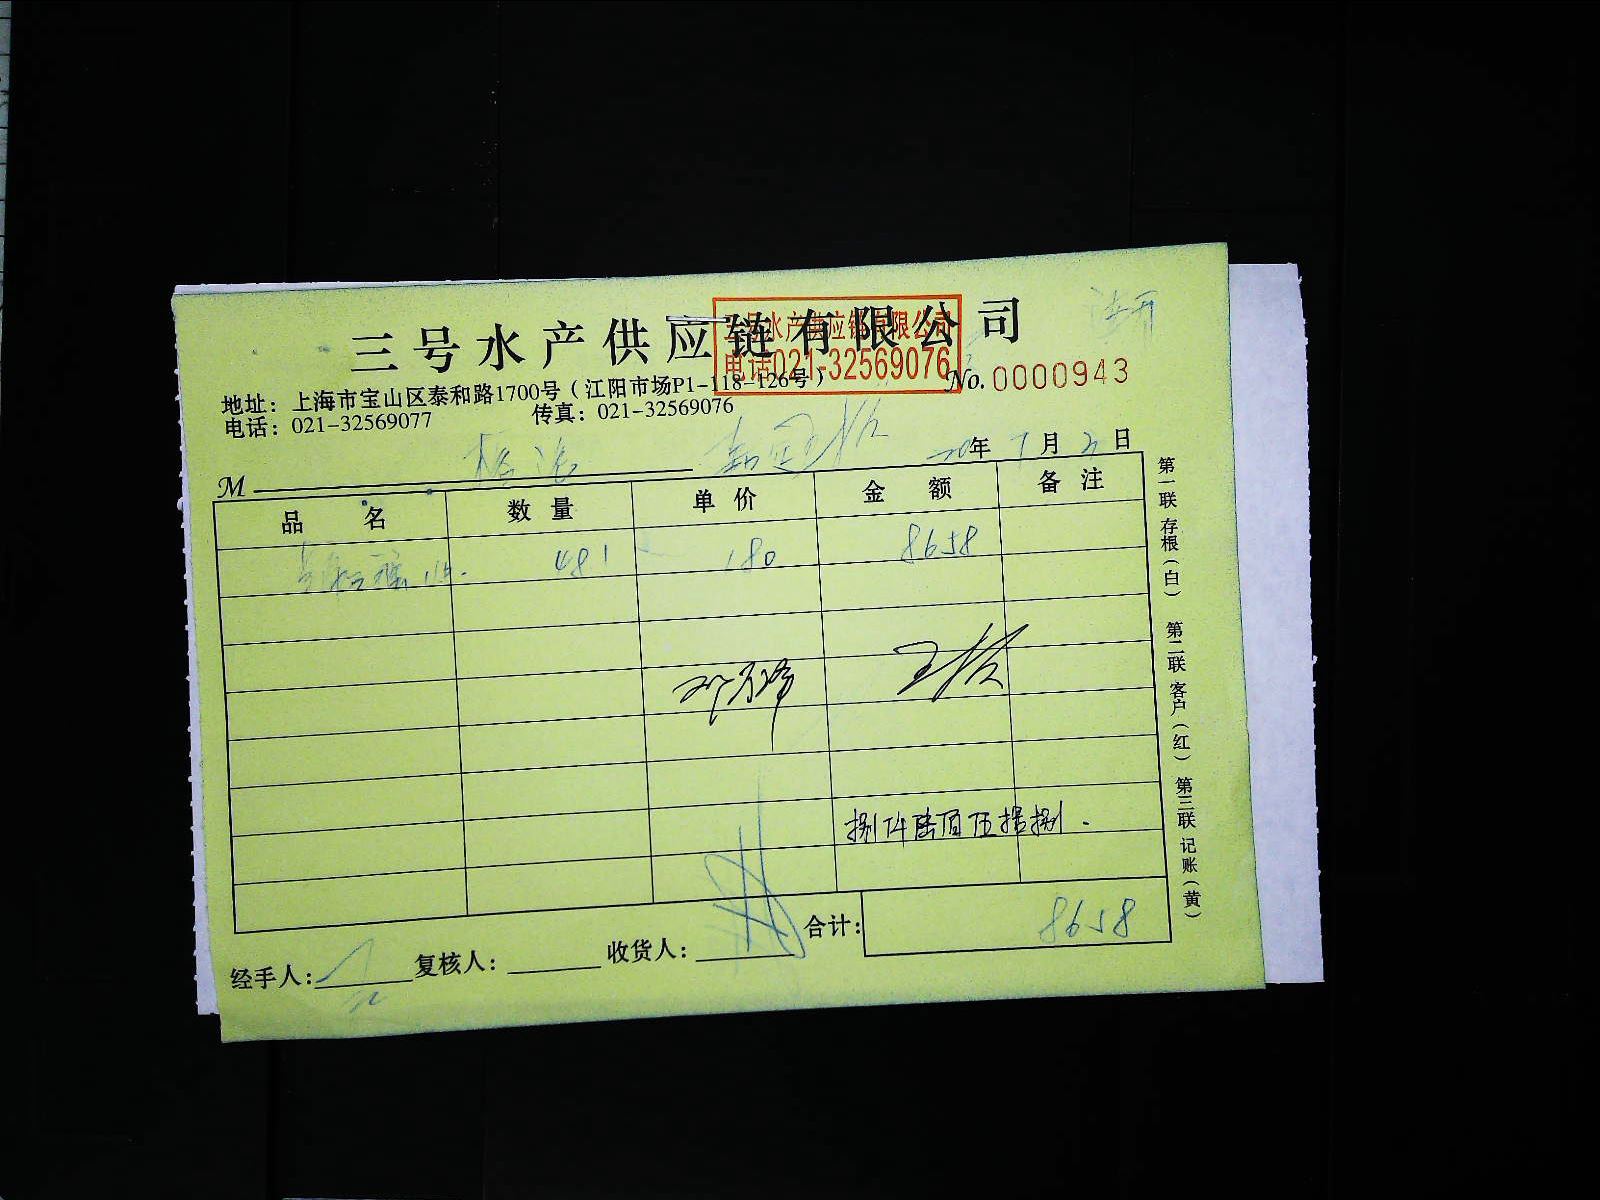 三号水产供应链有限公司
三号水产供应链有限公司
电话021-32569076
地址：上海市宝山区泰和路1700号（江阳市场P1-118-126号）
No.0000943
电话：021-32569077 传真：021-32569076
M
20年7月3日
品名 数量 单价 金额 备注
481 180 8658
捌仟陆佰伍拾捌.
合计： 8658
经手人： 复核人： 收货人：
第一联 存根（白） 第二联 客户（红） 第三联 记账（黄）